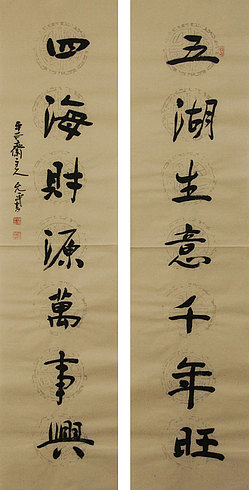 五湖生意千年旺
四海財源萬事興